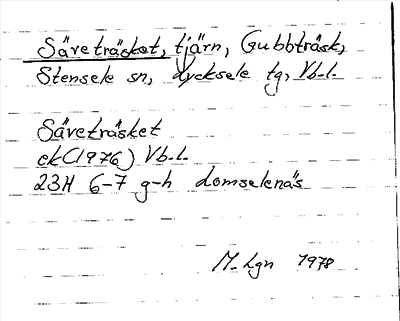 Säveträsket, tjärn, Gubbträsk,
Stensele sn, Lycksele tg, Vb-l.
Säveträsket
ek(1976) Vb-l.
23H 6-7 g-h Domselenäs
M-Lgn 1978